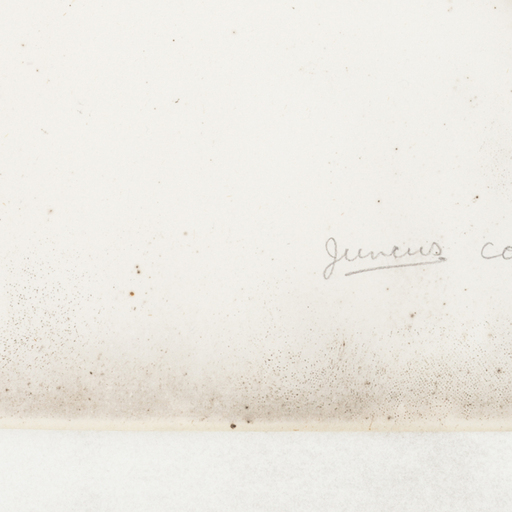 Juncus co